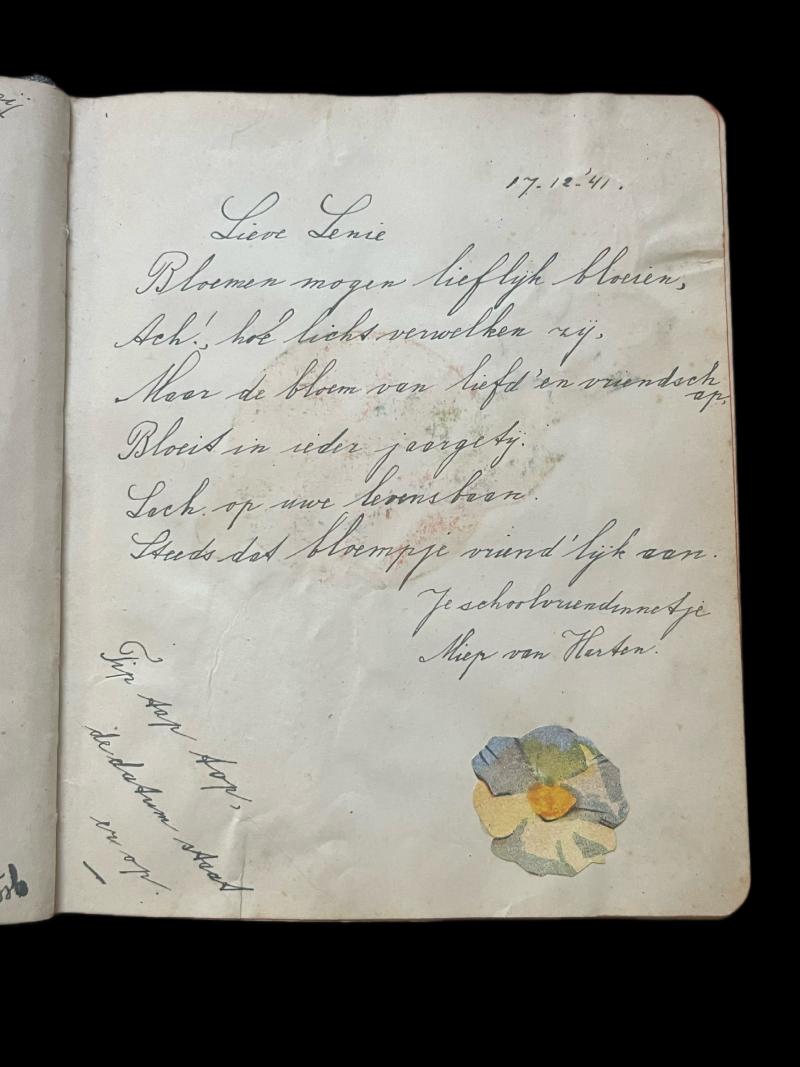 17-12-'41.
Lieve Lenie
Bloemen mogen lieflijk bloeien,
Ach!, hoe licht verwelken zij,
Maar de bloem van liefd' en vriendschap,
Bloeit in ieder jaargetij.
Lach op uwe levensbaan.
Steeds dat bloempje vriend'lijk aan.
Je schoolvriendinnetje
Miep van Harten.
Tip tap top,
de datum staat
er op.